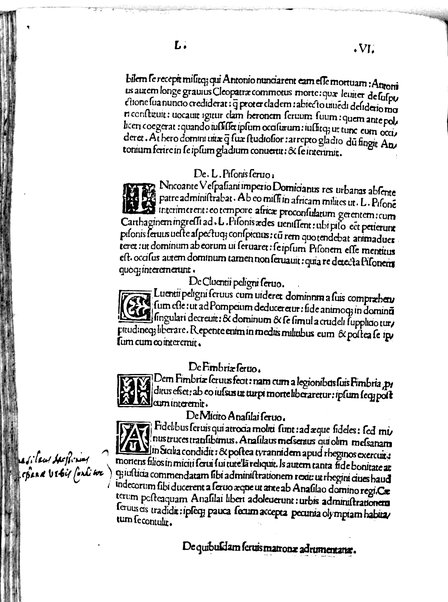 L. .VI.
bilem se recepit misitq; qui Antonio nunciarent eam esse mortuam: Antoni
us autem longe grauius Cleopatræ commotus morte: quæ leuiter de suspi
ctione sua nuncio crediderat: q̃ propter cladem: abiecto uiuẽdi desiderio mo
ri constituit: uocauit igitur clam heronem seruum suum: quem ante pol
liceri coegerat: quando iussisset ipsum occisurum: iussitq; ut tunc eum occi
deret. At hero dñi uitæ q̃ suæ studiosior: arrepto gladio dũ fingit An
tonium ferire in se ipsum gladium conuertit: & se interimit.
De. L. Pisonis seruo.
INncoante Vespasiani imperio Domicianus res urbanas absente
patre administrabat. Ab eo missi in africam milites ut. L. Pisonẽ
interimerent: eo tempore africæ proconsularum gerentem: cum
Carthaginem ingressi ad. L. Pisonis ædes uenissent: ubi piso eẽt petierunt
pisonis seruus ueste aspectuq; conspicuus: cũ rem quo tendebat animaduer
teret: ut dominum ab eorum ui seruaret: se ipsum Pisonem esse mentitus
est. occisus autem dominum tamen non seruauit: quia re detecta Pisonem
quoq; interemerunt.
De Cluentii peligni seruo.
CLuentii peligni seruus cum uideret dominum a suis comprehen
sum esse: ut ad Pompeium deduceretur: fide animoq; in dominũ
singulari decreuit: & dominum & se simul a crudeli supplicio tur
pitudineq; liberare. Repente enim in mediis militibus eum & postea se ip
sum cum eo interemit.
De Fimbriæ seruo.
IDem Fimbriæ seruus fecit: nam cum a legionibus suis Fimbria ꝓ
ditus esset: ab eo iussus ut turpi morte liberaretur: ipsum seq; post
cum interemit.
De Micito Anasilai seruo.
AFidelibus seruis qui atrocia moliti sunt: ad æque fideles: sed mi
nus truces transibimus. Anasilaus messenius qui olim messanam
in Sicilia condidit: & postea tyrannidem apud rheginos exercuit:
moriens filios in miciti serui sui tutella reliquit. Is autem tanta fide bonitate at
q; iusticia commendatam sibi administrationem rexit: ut rhegini ciues haud
indecorum sibi ducerent a seruo æque ut ante ab Anasilao domino regi. Cæ
terum posteaquam Anasilai liberi adoleuerunt: urbis administrationem
seruus eis tradidit: ipseq; pauca secum accepta pecunia olympiam habita
tum se contulit.
De quibusdam seruis matronæ adrumentanæ.
messenius
Vrbis Conditor